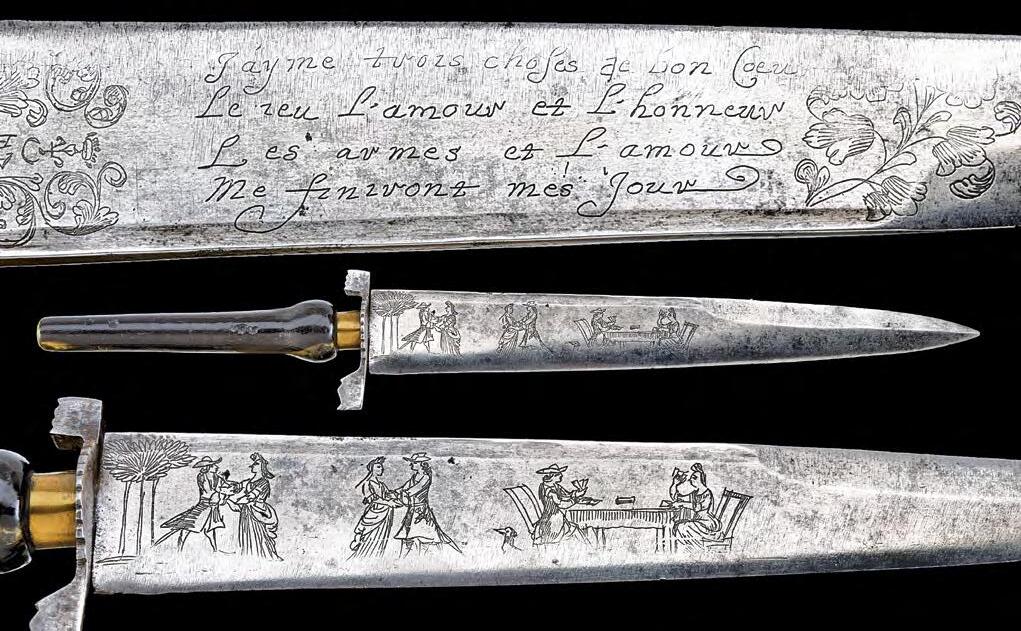 J'ayme trois choses de bon Coeur
Le ieu L'amour et L'honneur
Les armes et L'amour
Me finiront mes Jour